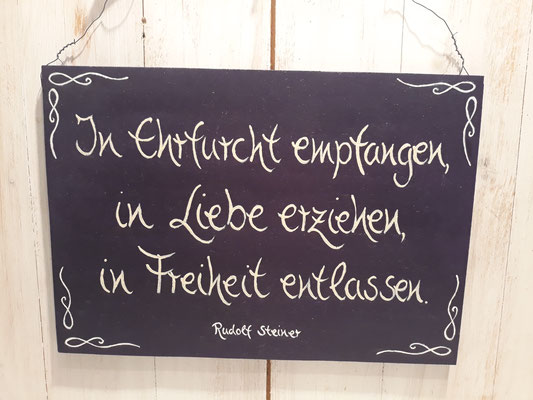 In Ehrfurcht empfangen,
in Liebe erziehen,
in Freiheit entlassen.
Rudolf Steiner